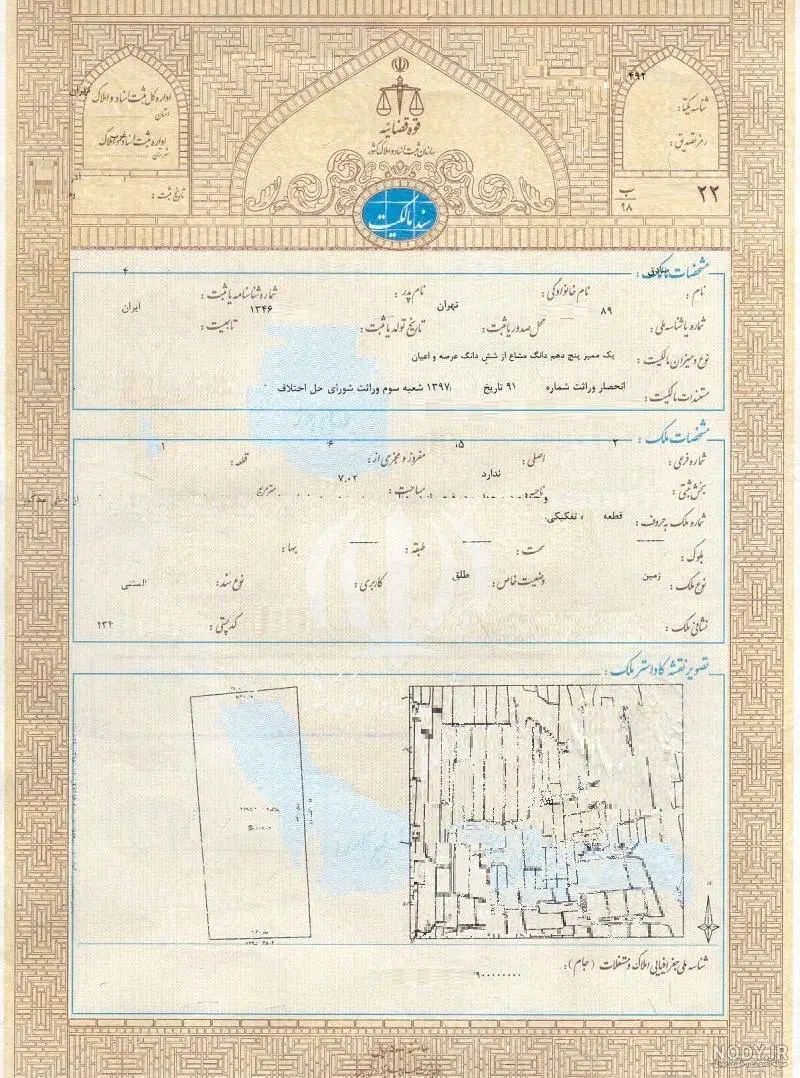 قوه قضائیه
سازمان ثبت اسناد و املاک کشور
سند مالکیت
اداره کل ثبت اسناد و املاک
استان
تهران
اداره ثبت اسناد و املاک
شهرستان
تاریخ ثبت :
۴۹۲
شناسه یکتا :
رمز تصدیق :
ب
۹۸
۲۲
مشخصات مالک :
۴
نام :
نام خانوادگی :
نام پدر :
شماره شناسنامه یا ثبت :
۸۹
تهران
۱۳۴۶
ایران
شماره یا شناسه ملی :
محل صدور یا ثبت :
تاریخ تولد یا ثبت :
تابعیت :
نوع و میزان مالکیت : یک ممیز پنج دهم دانگ مشاع از شش دانگ عرصه و اعیان
مستندات مالکیت : انحصار وراثت شماره ۹۱ تاریخ ۱۳۹۷ شعبه سوم وراثت شورای حل اختلاف
مشخصات ملک :
۲
۱۵
۶
۱
شماره فرعی :
اصلی :
مفروز و مجزی از :
قطعه :
بخش ثبتی :
ناحیه :
ندارد
مساحت :
۷.۰۲
مترمربع
شماره ملک به حروف : قطعه ، تفکیکی
بلوک :
سمت :
طبقه :
بها :
نوع ملک : زمین
وضعیت خاص : طلق
کاربری :
نوع سند :
نشانی ملک :
کد پستی : ۲۳۴
تصویر نقشه کاداستر ملک :
شناسه ملی جغرافیایی املاک و مستغلات (جام) :
NODY.IR